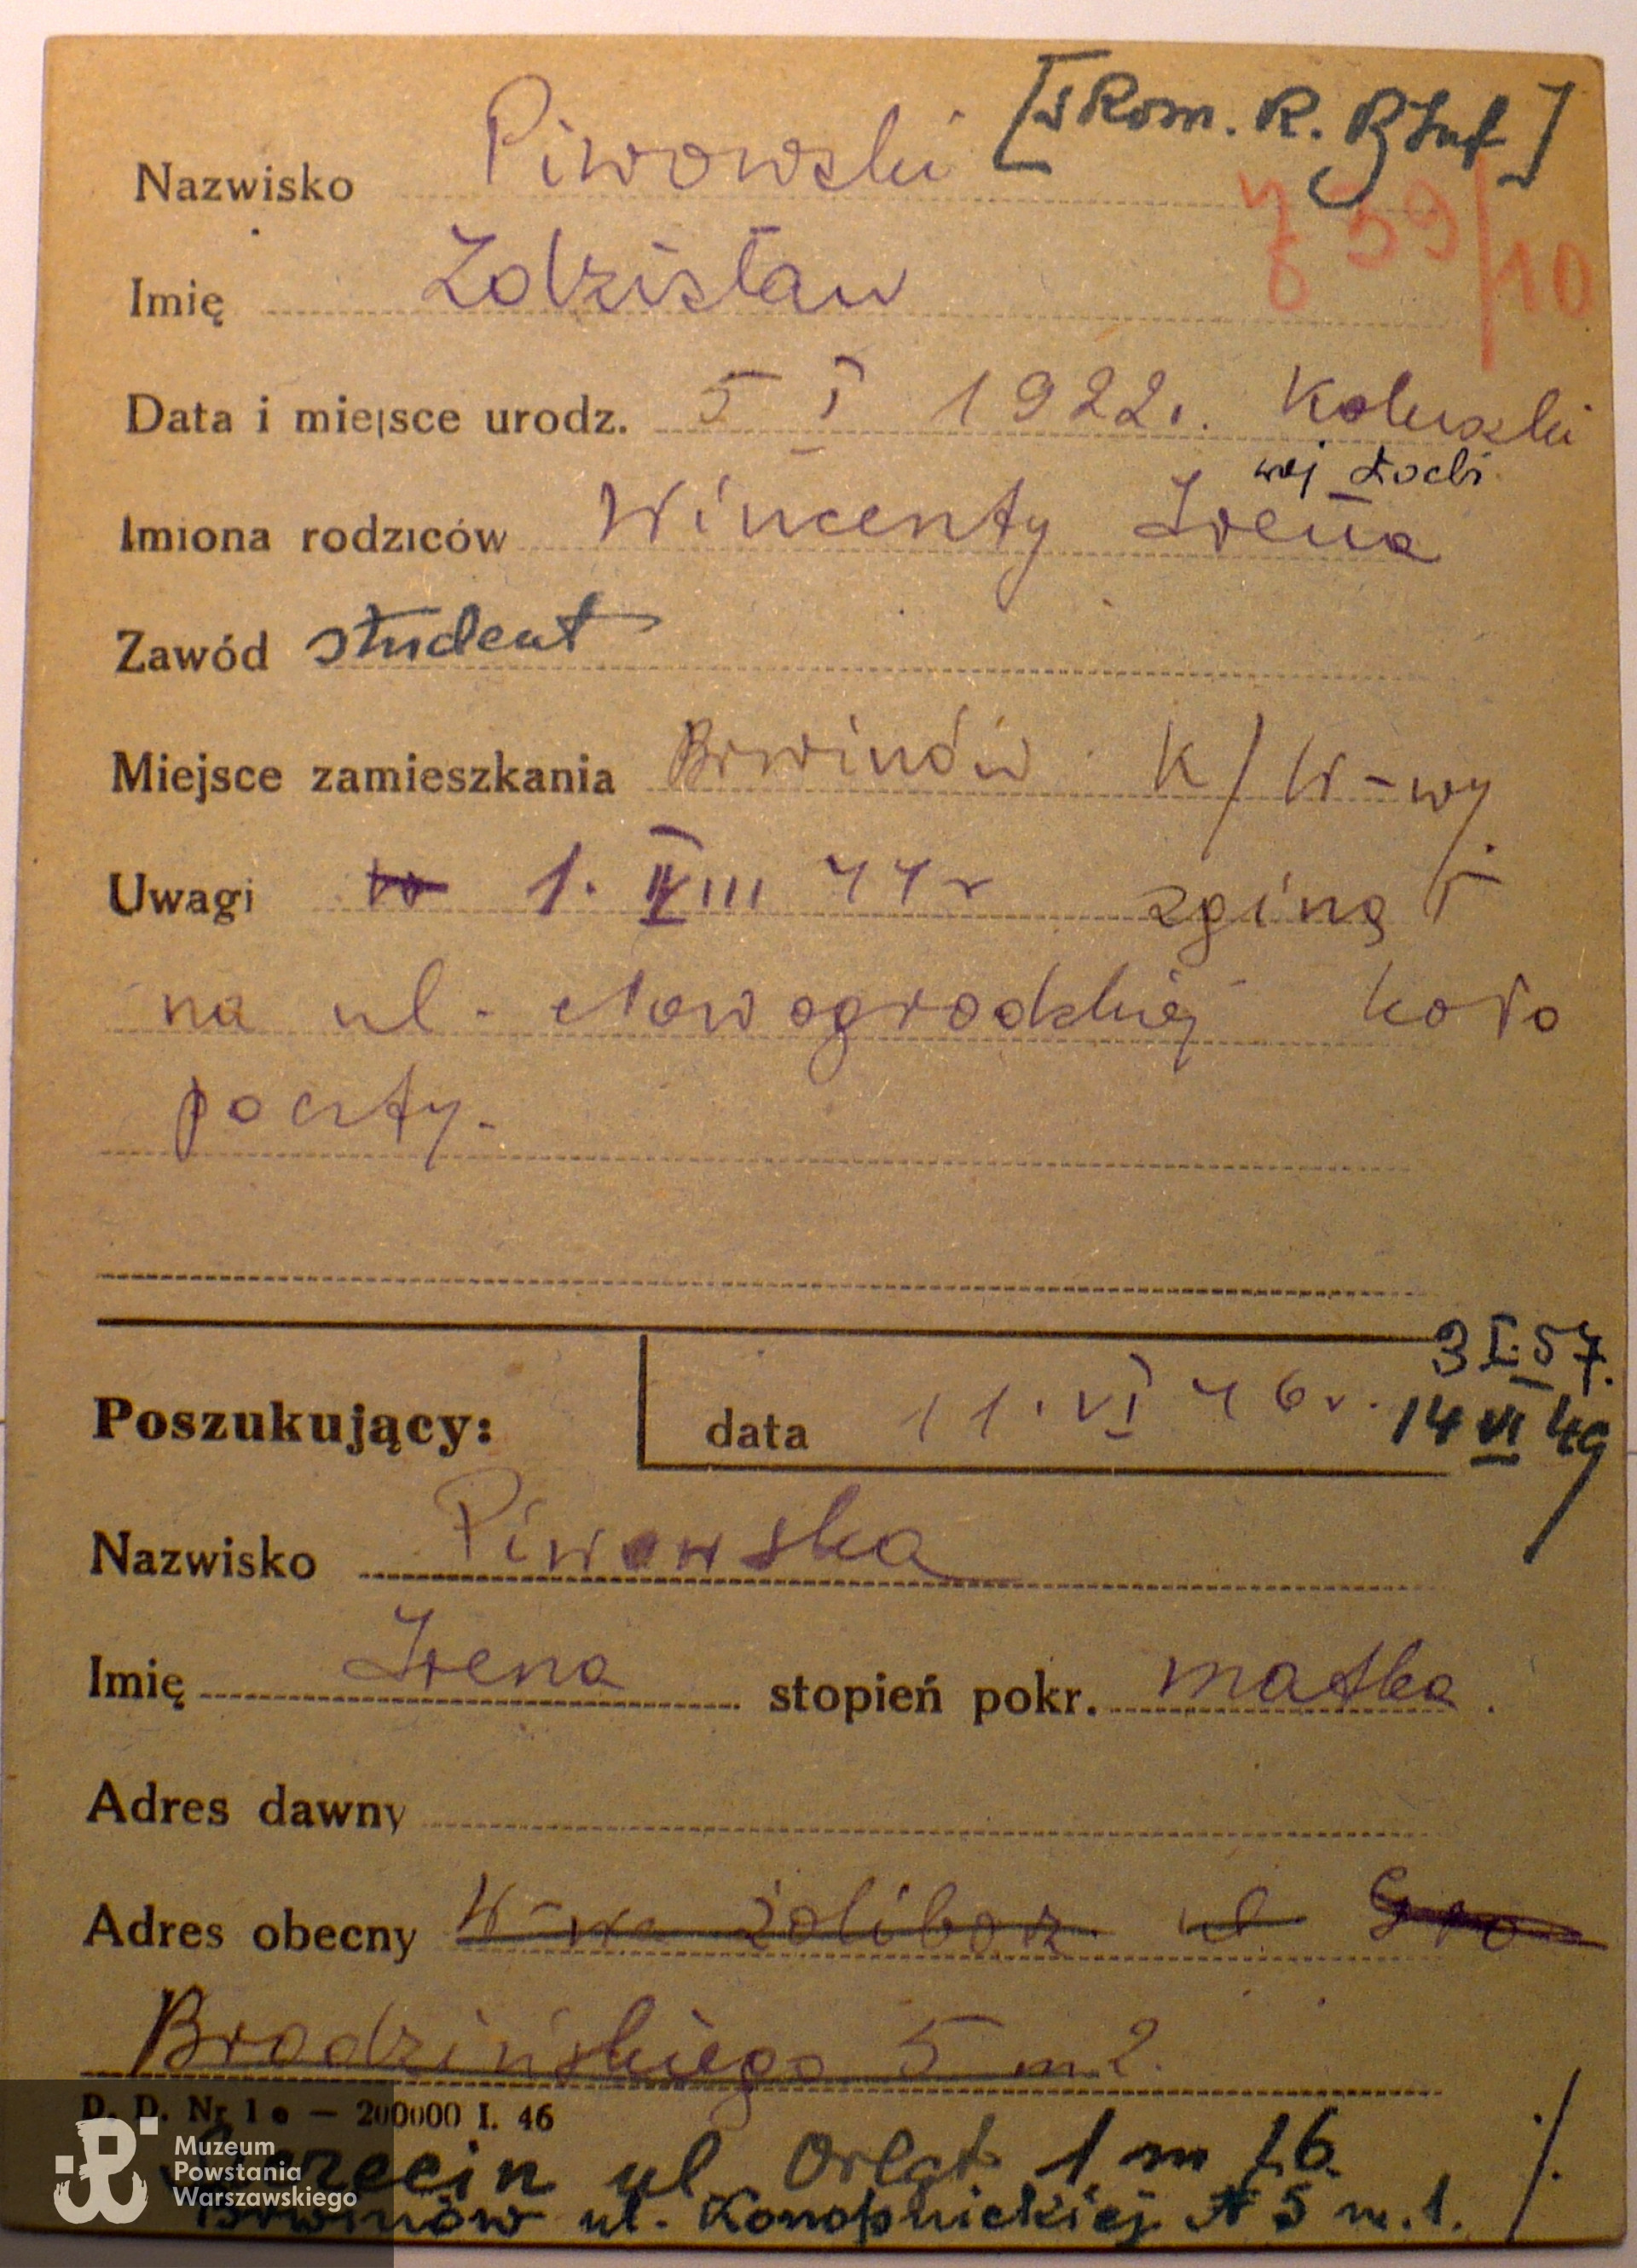 Nazwisko Piwowski
Imię Zdzisław 59/10
Data i miejsce urodz. 5 I 1922. Koluszki
woj Łódź
Imiona rodziców Wincenty Irena
Zawód student
Miejsce zamieszkania Brwinów k/W-wy
Uwagi 1. VIII 44 r zginął
na ul. Nowogrodzkiej koło
poczty.
3 I. 57.
Poszukujący: data 11. VI 46 r. 14 VI 49
Nazwisko Piwowska
Imię Irena stopień pokr. matka.
Adres dawny
Adres obecny W-wa Żoliborz ul Gro
Brodzińskiego 5 m 2.
D. D. Nr 1 — 200000 I. 46
Szczecin ul Orląt 1 m 16.
Brwinów ul. Konopnickiej N 5 m. 1.
Muzeum
Powstania
Warszawskiego